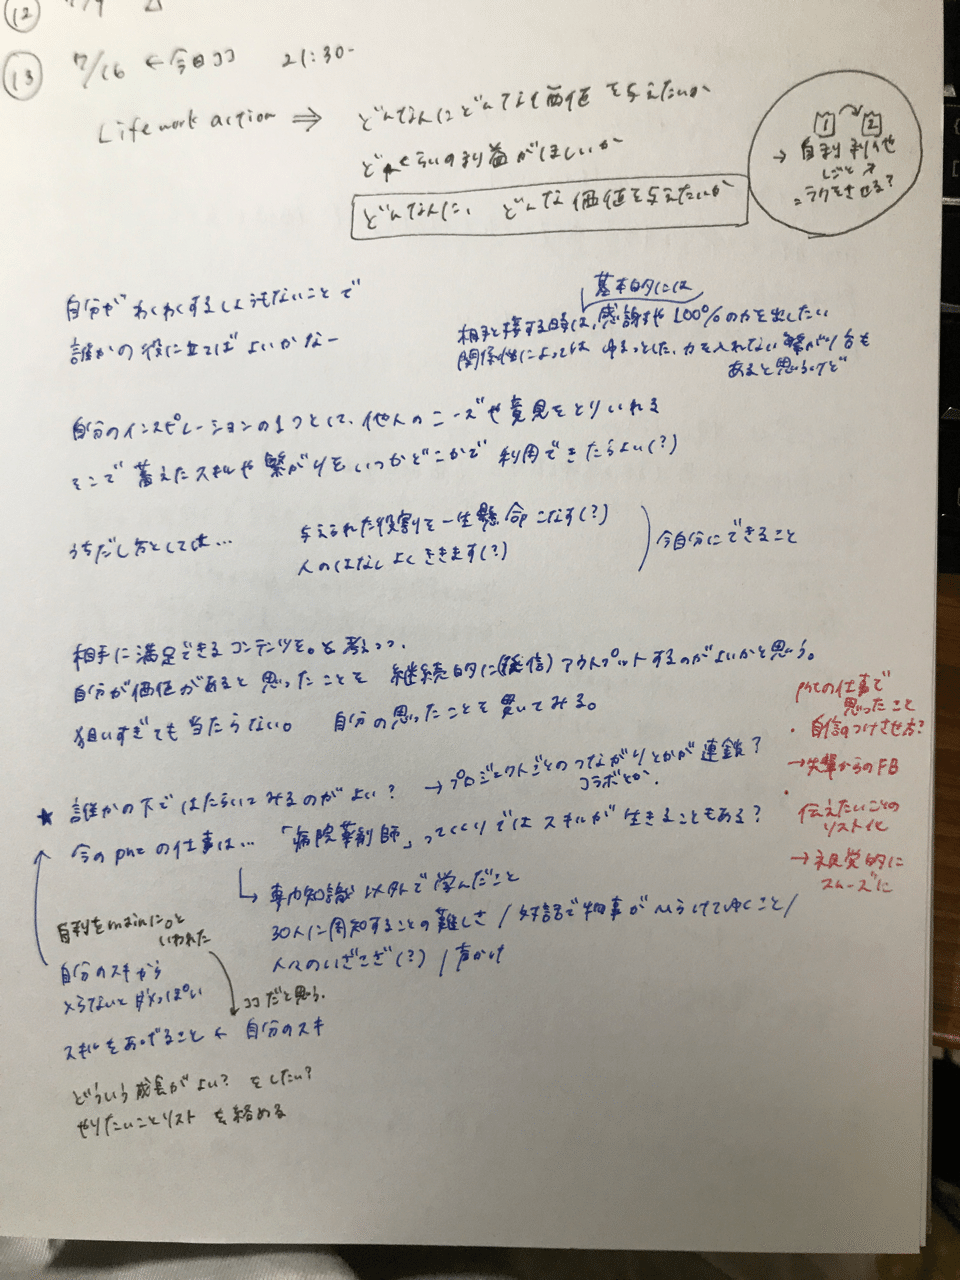 ⑫ 7/9 △
⑬ 7/16 ← 今日ココ 21:30-
Lifework action ⇒ どんな人にどんな価値を与えたいか
どれくらいの利益がほしいか
どんな人に、どんな価値を与えたいか
1 2
→ 自利 利他
しごと
ラクをさせる?
自分がわくわくするしょうもないことで
誰かの役に立てばよいかなー
基本的には
相手と接する時は、感謝や100%の力を出したい
関係性によっては ゆるっとした、力を入れない繋がり方も
あると思うけど
自分のインスピレーションの1つとして、他人のニーズや意見をとりいれる
そこで蓄えたスキルや繋がりをいつかどこかで利用できたらよい(?)
うちだし方としては…
与えられた役割を一生懸命こなす(?)
人のはなしよくききます(?)
今自分にできること
相手に満足できるコンテンツを。と考えつつ、
自分が価値があると思ったことを 継続的に(発信)アウトプットするのがよいかと思う。
狙いすぎても当たらない。 自分の思ったことを貫いてみる。
phcの仕事で
思ったこと
・自信のつけさせ方?
→先輩からのFB
・
伝えたいことの
リスト化
→視覚的に
スムーズに
★ 誰かの下ではたらいてみるのがよい? → プロジェクトごとのつながりとかが連鎖?
コラボとか.
今のphcの仕事は… 「病院薬剤師」ってくくりではスキルが生きることもある?
↳ 専門知識以外で学んだこと
30人に周知することの難しさ / 対話で物事がひらけてゆくこと /
人々のいざこざ(?) / 声かけ
自利をmainに。と
いわれた
自分のスキから
とらないとダメっぽい
ココだと思う.
スキルをあげること ← 自分のスキ
どういう成長がよい? をしたい?
やりたいことリスト を絡める